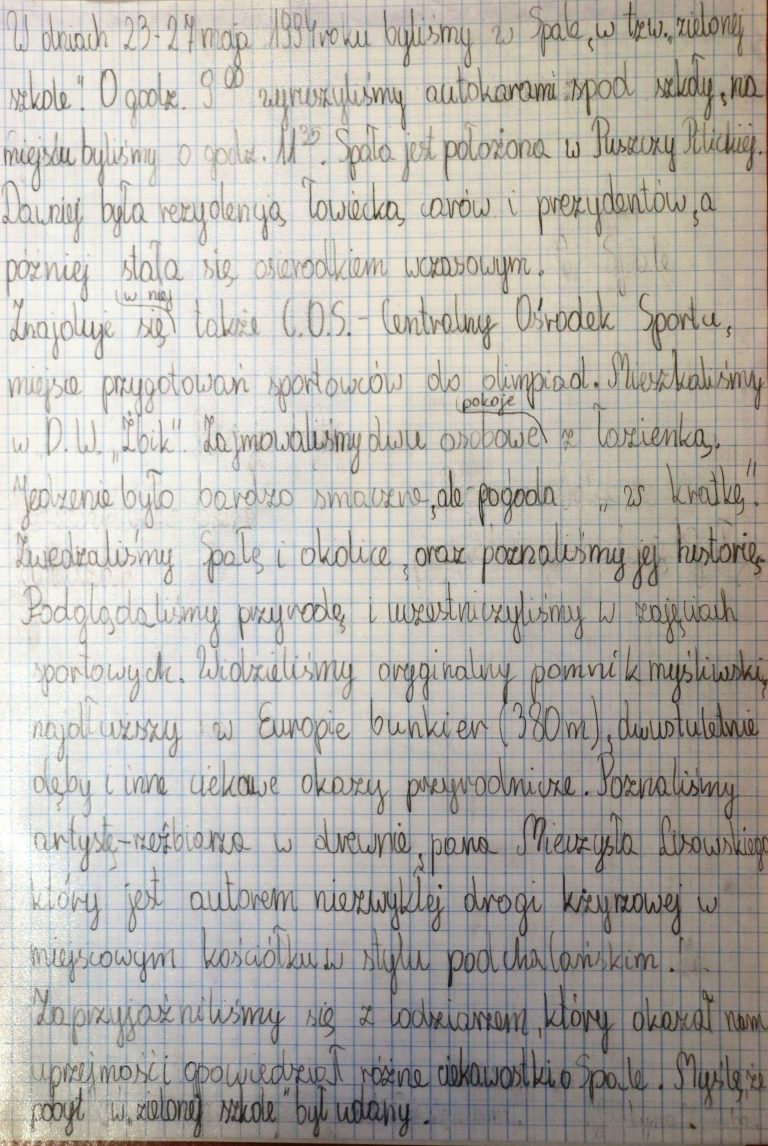 W dniach 23-27 maja 1994 roku byliśmy w Spale, w tzw. „zielonej
szkole". O godz. 9⁰⁰ wyruszyliśmy autokarami spod szkoły, na
miejscu byliśmy o godz. 11³⁵. Spała jest położona w Puszczy Pilickiej.
Dawniej była rezydencją łowiecką carów i prezydentów, a
później stała się ośrodkiem wczasowym.
w niej
Znajduje się także C.O.S. - Centralny Ośrodek Sportu,
miejsce przygotowań sportowców do olimpiad. Mieszkaliśmy
pokoje
w D.W. „Żbik". Zajmowaliśmy dwu osobowe z łazienką.
Jedzenie było bardzo smaczne, ale pogoda „w kratkę".
Zwiedzaliśmy Spałę i okolice, oraz poznaliśmy jej historię.
Podglądaliśmy przyrodę i uczestniczyliśmy w zajęciach
sportowych. Widzieliśmy oryginalny pomnik myśliwski,
najdłuższy w Europie bunkier (380m), dwustuletnie
dęby i inne ciekawe okazy przyrodnicze. Poznaliśmy
artystę-rzeźbiarza w drewnie, pana Mieczysła Lisowskiego
który jest autorem niezwykłej drogi krzyżowej w
miejscowym kościółku w stylu podchalańskim.
Zaprzyjaźniliśmy się z lodziarzem, który okazał nam
uprzejmość i opowiedział różne ciekawostki o Spale. Myślę, że
pobyt w „zielonej szkole" był udany.